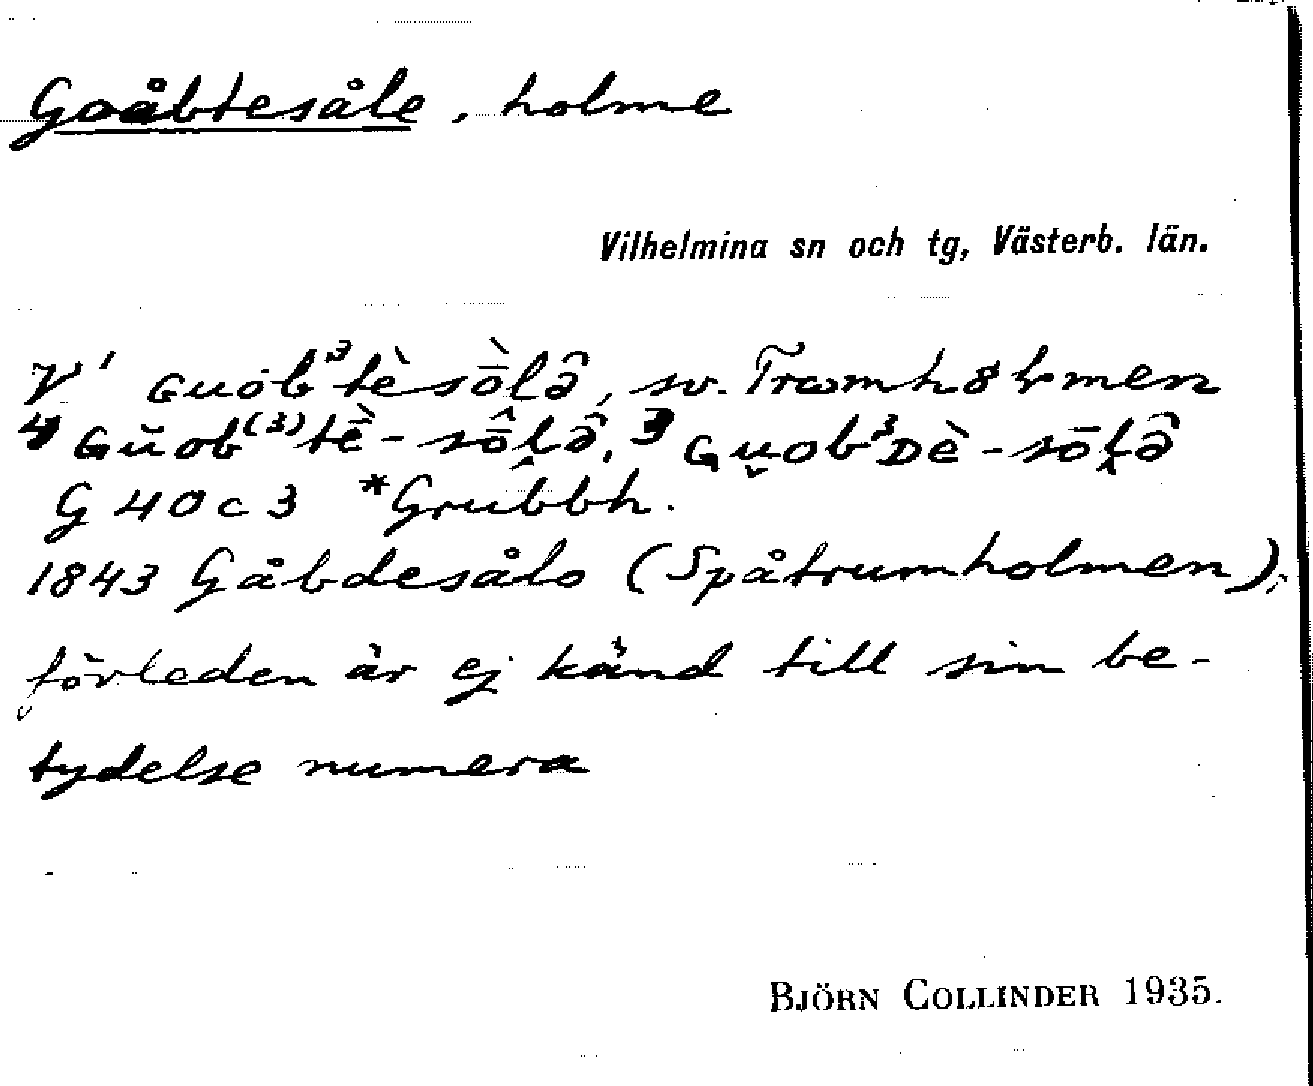 Goåbtesåle, holme
Vilhelmina sn och tg, Västerb. län.
V¹ ɢuob³tè sṑlə̂, sv.
⁴ ɢŭob⁽³⁾tḕ-sō̂l̬ə̂, ³ ɢu̯ob³ᴅè-sōl̬ə̂
G 40 c 3 *Grubbh.
1843 Gåbdesålo (Spåtrumholmen);
förleden är ej känd till sin be-
tydelse numera
BJÖRN COLLINDER 1935.